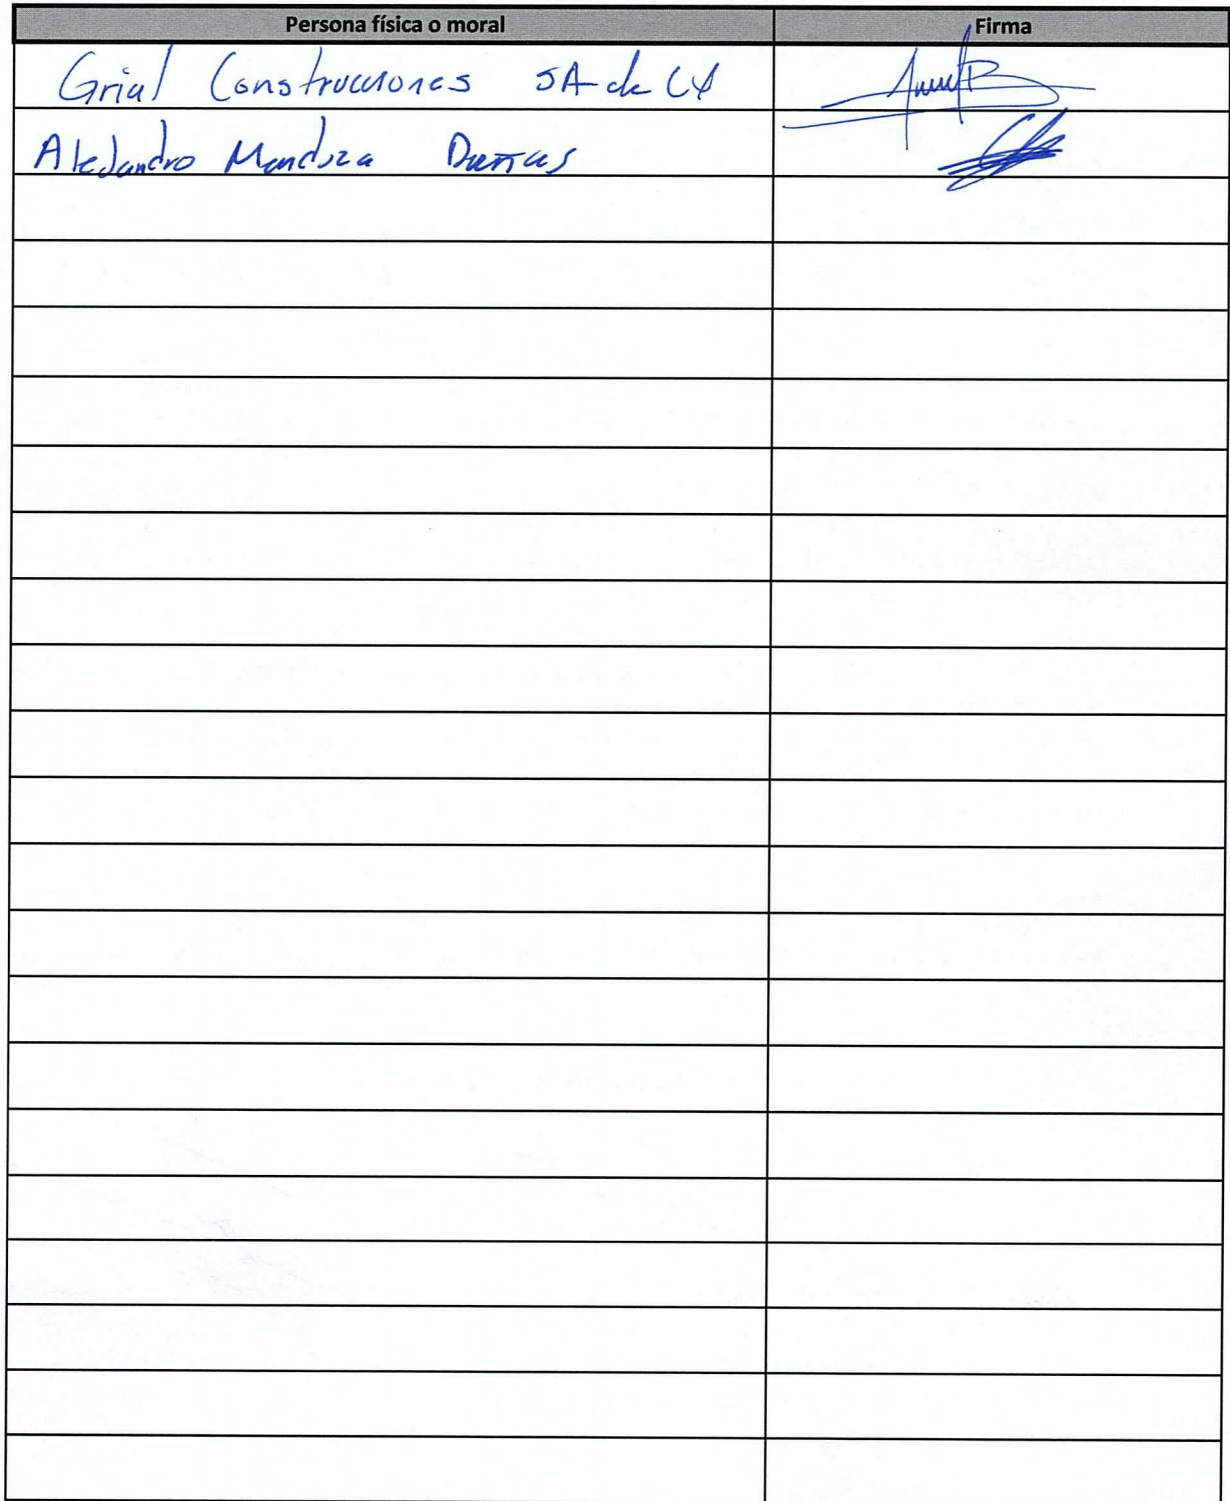 Persona física o moral Firma
Grial Construcciones SA de CV
Alejandro Mendoza